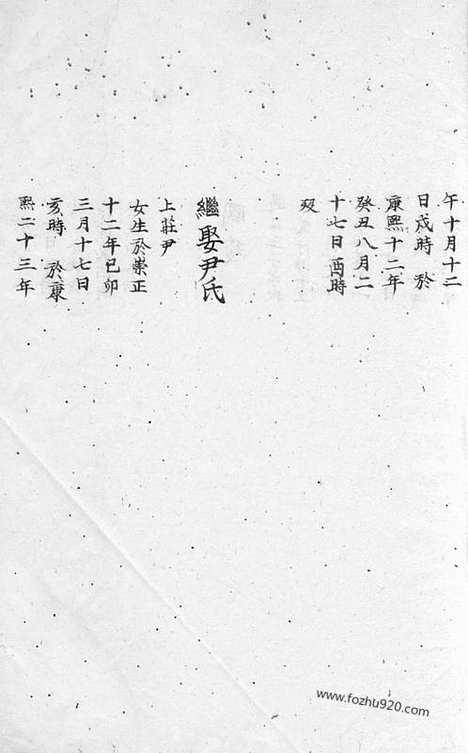 午十月十二
日戌時 於
康熙十二年
癸丑八月二
十七日酉時
歿
繼娶尹氏
上莊尹
女生於崇正
十二年已卯
三月十七日
亥時 於康
熙二十三年
www.fozhu920.com